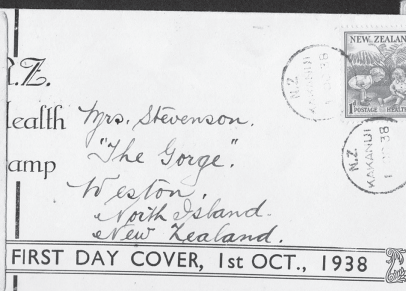 N.Z.
Health
Stamp
Mrs. Stevenson.
"The Gorge".
Weston,
North Island.
New Zealand.
NEW ZEALAND
1D POSTAGE HEALTH
N.Z.
KAKANUI
38
N.Z.
KAKANUI
1 38
FIRST DAY COVER, 1st OCT., 1938